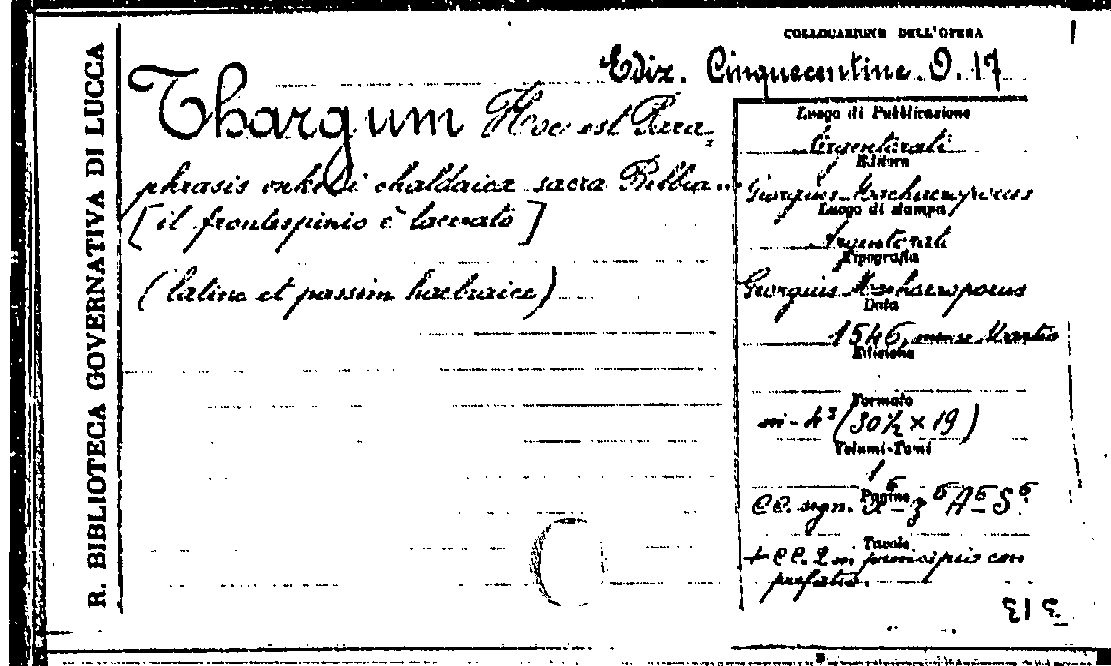 R. BIBLIOTECA GOVERNATIVA DI LUCCA
COLLOCAZIONE DELL'OPERA
Ediz. Cinquecentine. O. 17
Thargum Hoc est Para
phrasis onkeli chaldaica sacra Biblia...
[il frontespinio è lacerato]
(latine et passim haebraice)
Luogo di Pubblicazione
Argentorati
Editore
Georgius Machaeropoeus
Luogo di stampa
Argentorati
Tipografia
Georgius Machaeropoeus
Data
1546, mense Martio
Edizione
Formato
in-4° (30½ × 19)
Volumi-Tomi
1
Pagine
CC. sign. z⁶ A⁶-S⁶
Tavole
+ CC. 2 in principio con
prefatio.